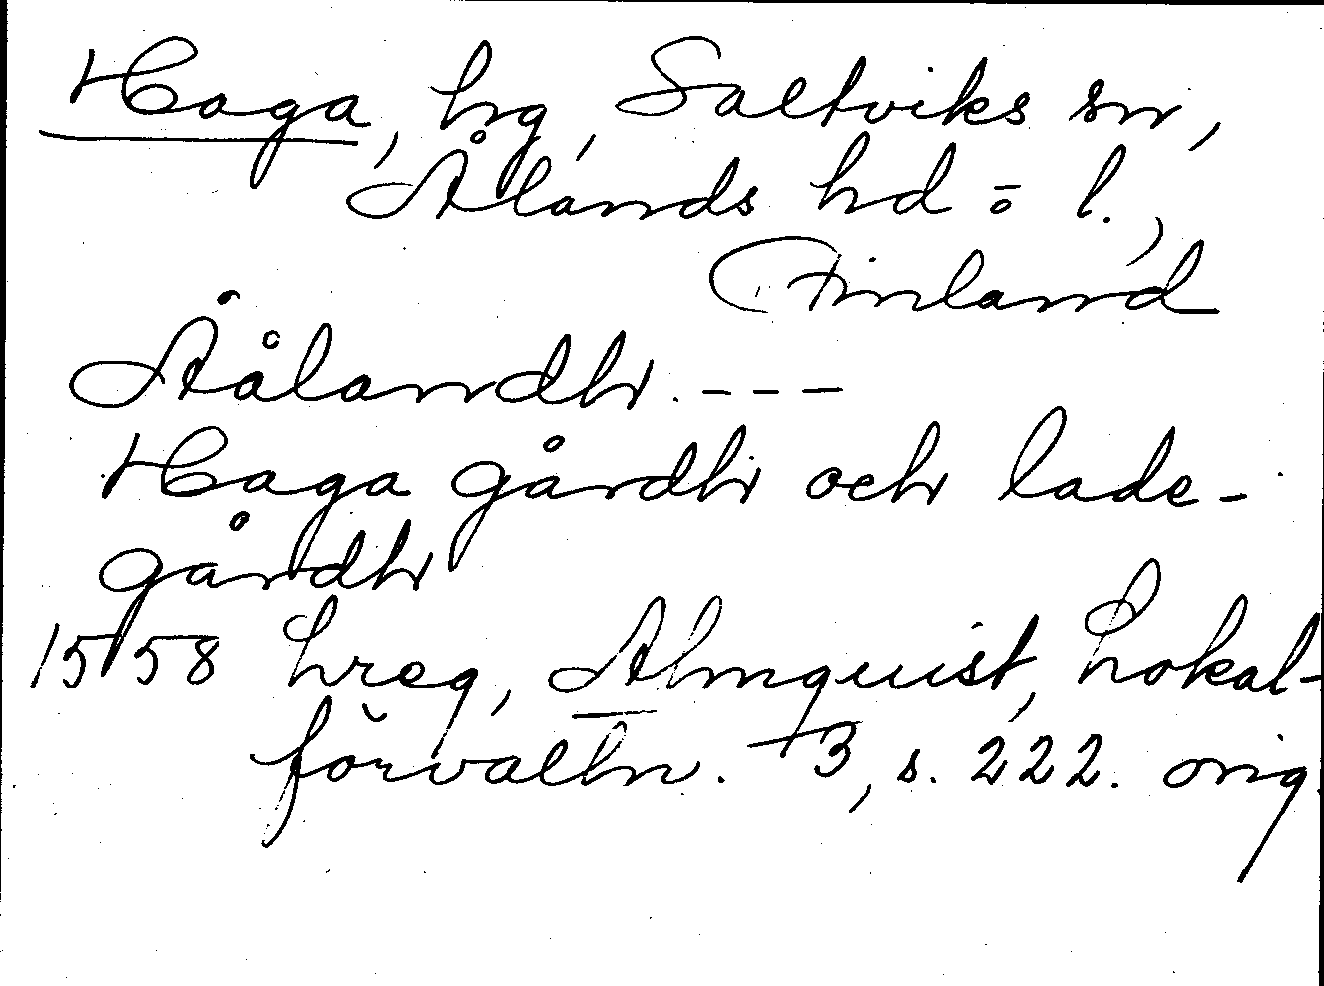 Haga, hg, Saltviks sn,
Ålands hd o l.,
Finland
Åålandh. ---
Haga gårdh och lade-
gårdh
1558 hreg, Almquist, Lokal-
förvaltn. 3, s. 222. orig.